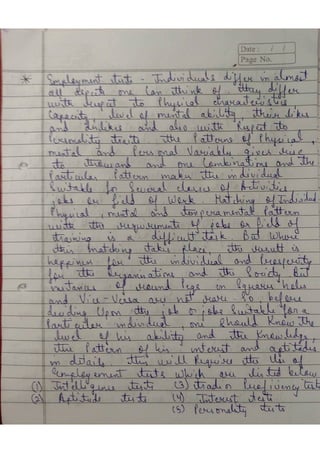 Date: / /
Page No.
* Employment tests - Individuals differ in almost
all aspects one can think of. they differ
with respect to Physical characteristics
Capacity, level of mental ability, their likes
and dislikes and also with respect to
Personality traits. the Patterns of Physical,
mental and Personal Variable gives rise
to thousand and one Combinations and the
Particular Pattern makes the individual
Suitable for Several classes of Activities,
jobs or field of Work. Matching of Individual
Physical, mental and temperamental Pattern
with the requirements of jobs or field of
training is a difficult task. But where
this matching takes place, the result is
happiness for the individual and Prosperity
for the Organisations and the Society. But
instances of round legs in Square holes
and Vice-Versa are not rare. So, before
deciding Upon the job or jobs Suitable for a
Particular individual, one Should Know the
level of his ability and the Knowledge,
the Pattern of his interest and aptitudes
in details. this will Require the Use of
Employment tests which are listed below
(1) Intelligence tests (3) Proficiency tests
(2) Aptitude tests (4) Interest tests
(5) Personality tests